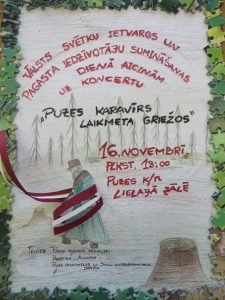 Valsts svētku ietvaros un
pagasta iedzīvotāju sumināšanas
dienā aicinām
uz koncertu
"Puzes karavīrs
laikmeta griežos"
16. novembrī
plkst. 18:00
Puzes k/n
lielajā zālē